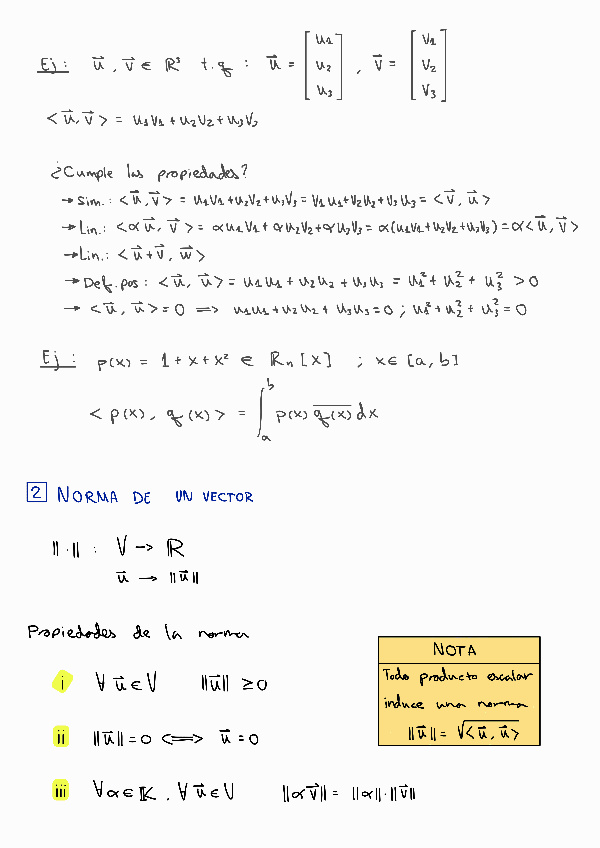 Ej: u⃗, v⃗ ∈ ℝ³ t.q: u⃗ = [u1 u2 u3], v⃗ = [v1 v2 v3]
<u⃗, v⃗> = u1v1 + u2v2 + u3v3
¿Cumple las propiedades?
→ Sim.: <u⃗, v⃗> = u1v1+u2v2+u3v3 = v1u1+v2u2+v3u3 = <v⃗, u⃗>
→ Lin.: <αu⃗, v⃗> = αu1v1 + αu2v2 + αu3v3 = α(u1v1+u2v2+u3v3) = α<u⃗, v⃗>
→ Lin.: <u⃗+v⃗, w⃗>
→ Def.pos: <u⃗, u⃗> = u1u1 + u2u2 + u3u3 = u1² + u2² + u3² > 0
→ <u⃗, u⃗> = 0 ⟹ u1u1 + u2u2 + u3u3 = 0 ; u1² + u2² + u3² = 0
Ej: p(x) = 1 + x + x² ∈ ℝn[x] ; x ∈ [a, b]
<p(x), q(x)> = ∫ₐᵇ p(x) q̅(̅x̅)̅ dx
2 NORMA DE UN VECTOR
‖·‖ : V → ℝ
u⃗ → ‖u⃗‖
Propiedades de la norma
i ∀ u⃗ ∈ V ‖u⃗‖ ≥ 0
ii ‖u⃗‖ = 0 ⟺ u⃗ = 0
iii ∀α ∈ 𝕂, ∀ u⃗ ∈ V ‖αv⃗‖ = ‖α‖·‖v⃗‖
NOTA
Todo producto escalar
induce una norma
‖u⃗‖ = √<u⃗, u⃗>